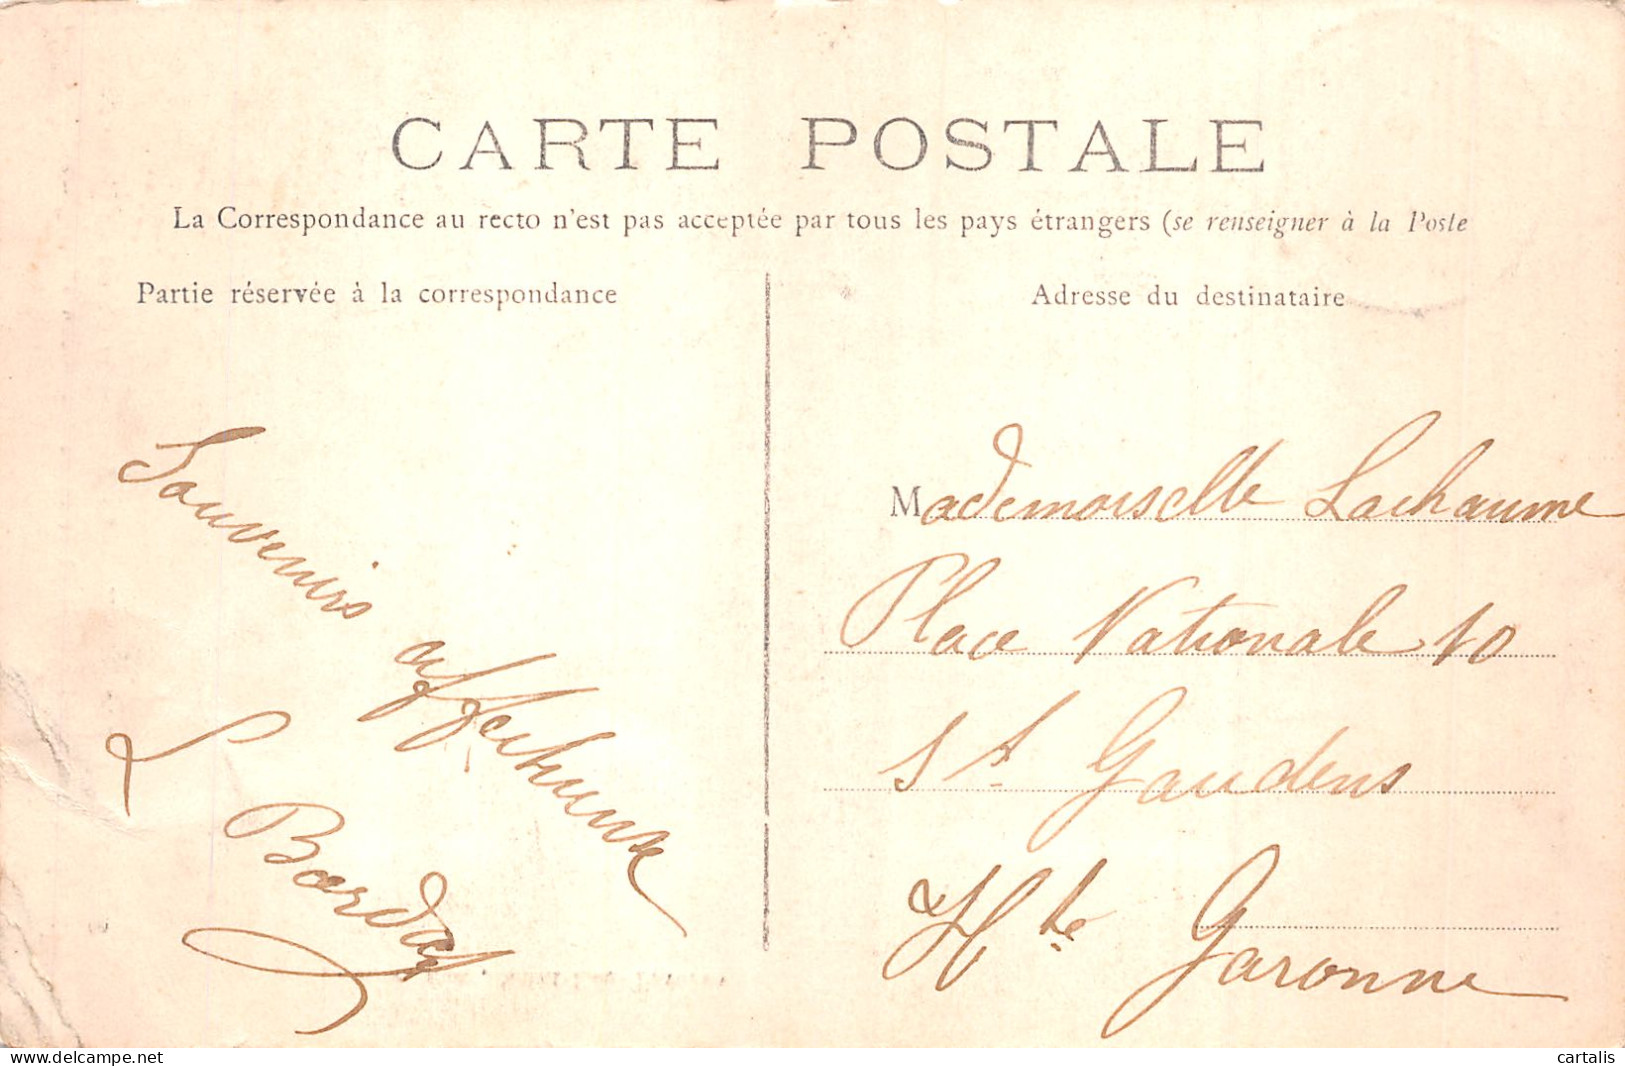 CARTE POSTALE
La Correspondance au recto n'est pas acceptée par tous les pays étrangers (se renseigner à la Poste
Partie réservée à la correspondance
Adresse du destinataire
Souvenirs affectueux
L Bardat
Mademoiselle Lachaume
Place Nationale 10
St Gaudens
Hte Garonne
delcampe.net
cartalis